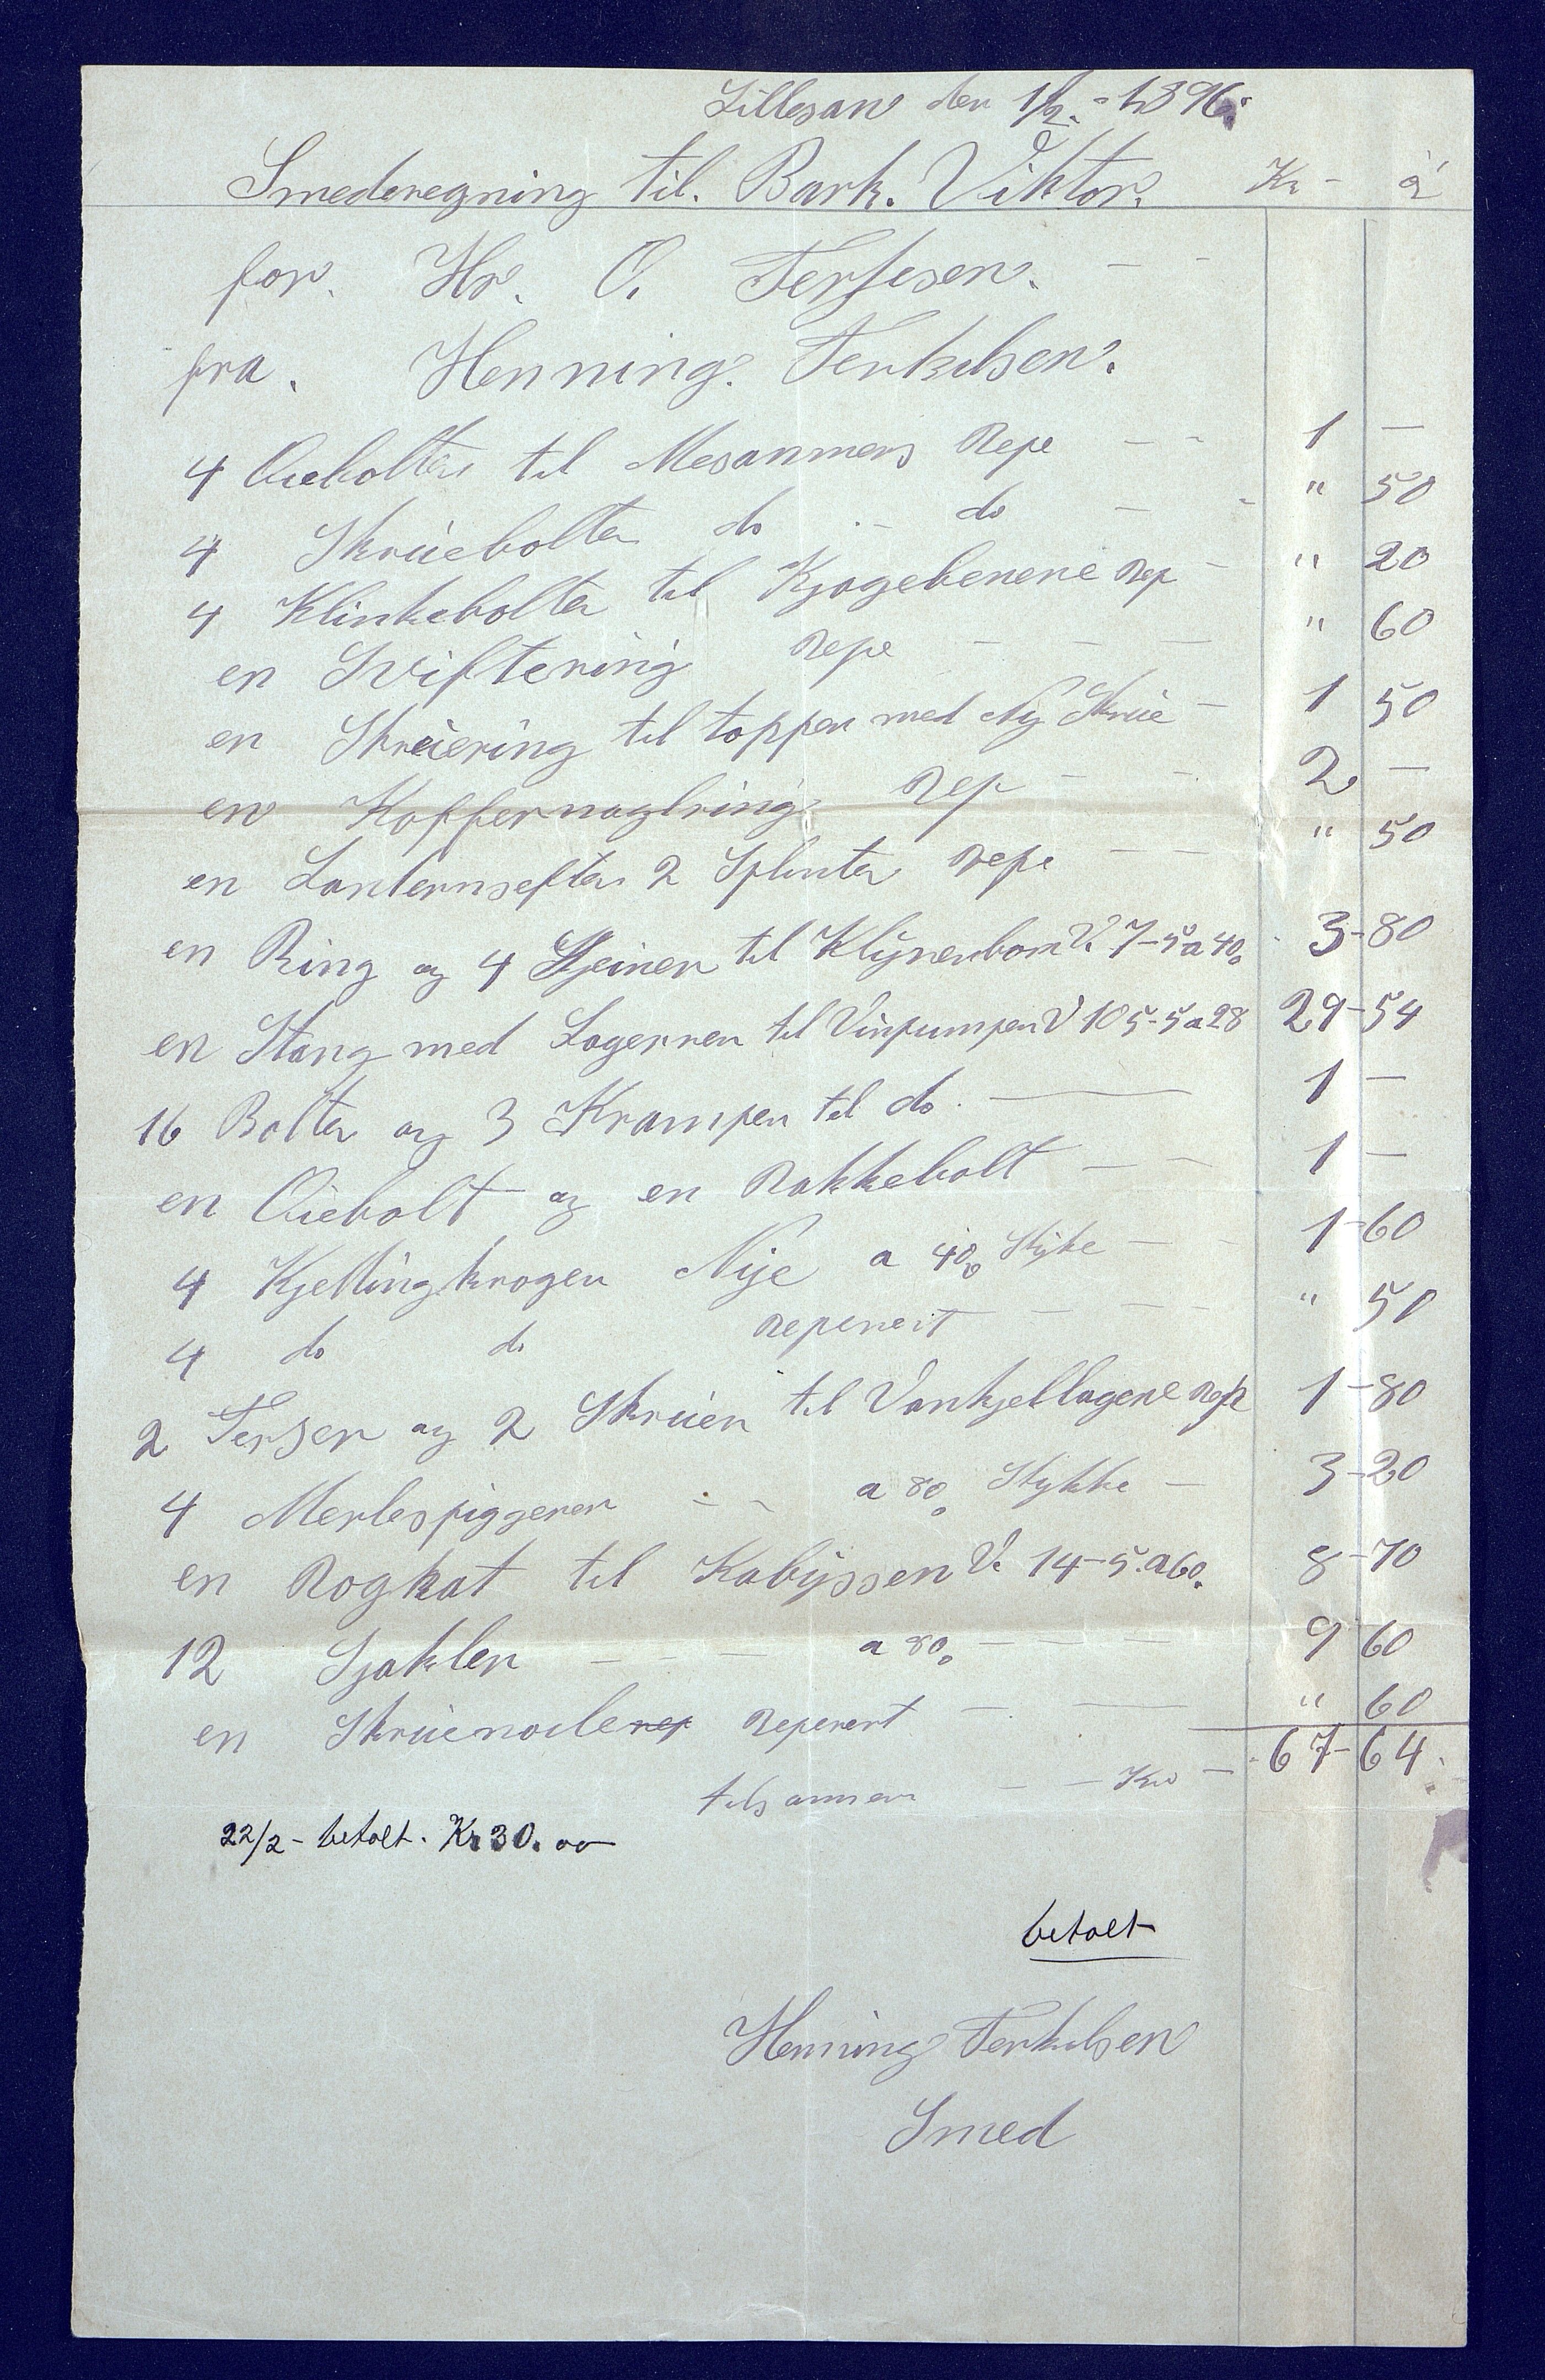 Lillesan den 1/2. - 1896.
Smederegning til. Bark. Viktor. Kr - ö
for. Hr. O. Terjesen. - -
fra. Henning. Terkelsen.
4 Öiebolter til Mesanmers Repe - - 1 -
4 Skrüebolter do - do - - " 50
4 Klinkebolter til Kjøgebenene Rep - " 20
en Sviftering Repe - - - " 60
en Skrüering til toppen med Ny Skrüe - 1 50
en Koffernaglring Rep - - 2 -
en Lanternsefter 2 Splinter Repe - - " 50
en Ring og 4 Skeiner til Klyverbom V. 7-5 a 40. 3-80
en Stang med Lagerren til Vinpumpen V 105-5 a 28 29-54
16 Bolter og 3 Kramper til do. - 1 -
en Öiebolt og en Rakkebolt - - 1 -
4 Kjettingkroger Nÿe a 40. Stÿke - - 1-60
4 do do Reperert - - - " 50
2 Terser og 2 Skrüer til Vankjellagene Rep 1-80
4 Merlespiggerer - - a 80. Stykke - 3-20
en Rogkat til Kabÿssen V. 14-5. a 60. 8-70
12 Sjakler - - - a 80. - - - 9 60
en Skrüenoile rep Reperert - - " 60
tilsammen - - Kr - 67-64.
22/2 - betalt. Kr 30.00
betalt
Henning Terkelsen
Smed